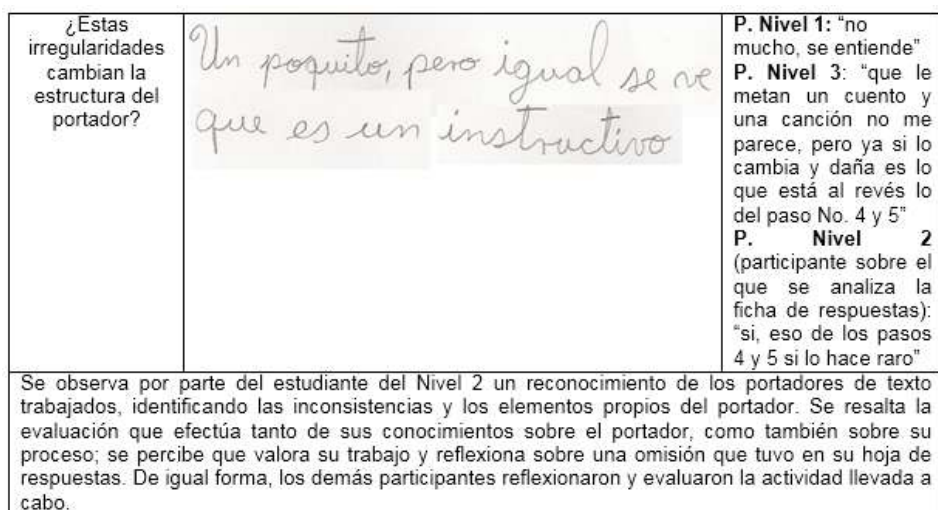 ¿Estas
irregularidades
cambian la
estructura del
portador?
Un poquito, pero igual se ve
que es un instructivo
P. Nivel 1: “no
mucho, se entiende”
P. Nivel 3: “que le
metan un cuento y
una canción no me
parece, pero ya si lo
cambia y daña es lo
que está al revés lo
del paso No. 4 y 5”
P. Nivel 2
(participante sobre el
que se analiza la
ficha de respuestas):
“si, eso de los pasos
4 y 5 si lo hace raro”
Se observa por parte del estudiante del Nivel 2 un reconocimiento de los portadores de texto
trabajados, identificando las inconsistencias y los elementos propios del portador. Se resalta la
evaluación que efectúa tanto de sus conocimientos sobre el portador, como también sobre su
proceso; se percibe que valora su trabajo y reflexiona sobre una omisión que tuvo en su hoja de
respuestas. De igual forma, los demás participantes reflexionaron y evaluaron la actividad llevada a
cabo.